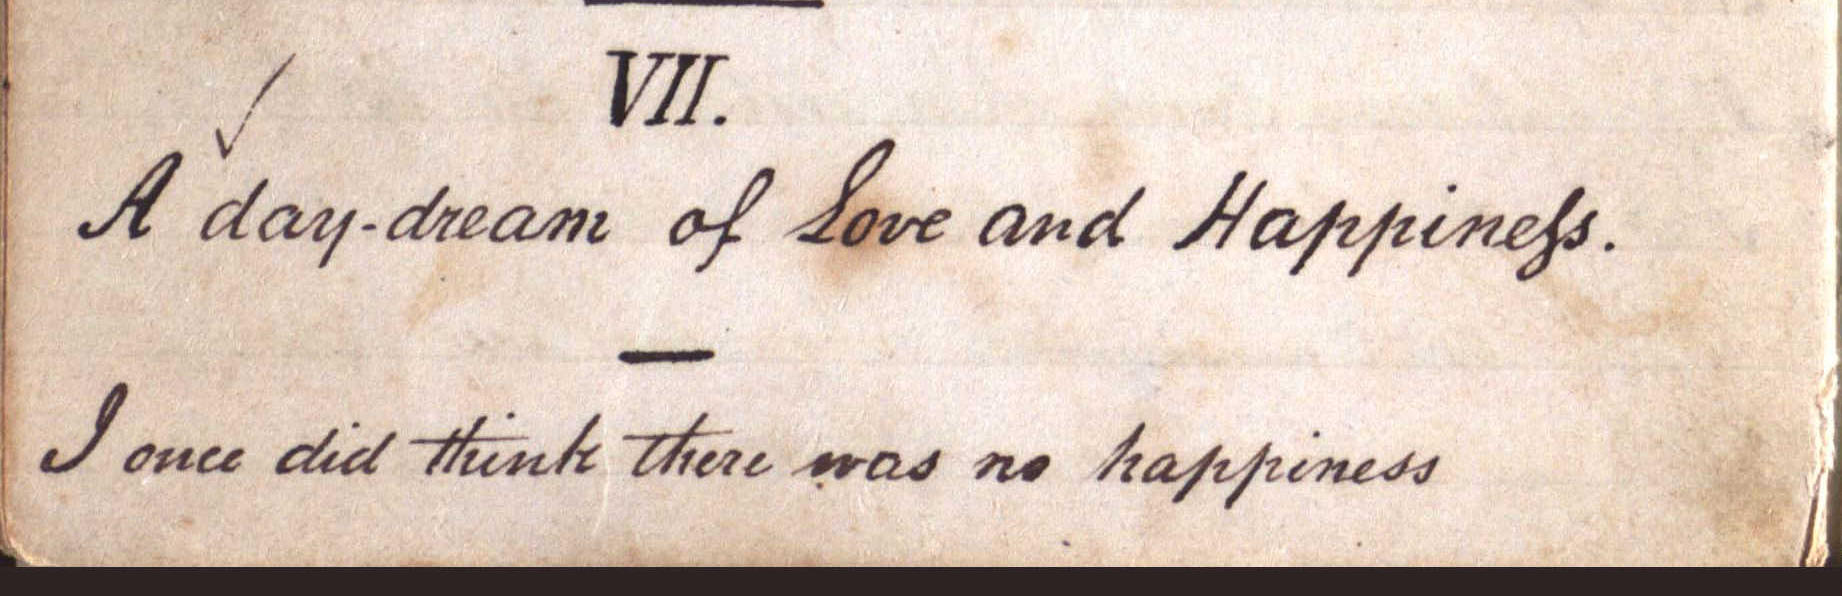 VII.
A day-dream of Love and Happineſs.
I once did think there was no happiness